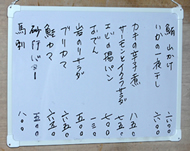 鮪山かけ 六〇〇
いかの一夜干し 六〇〇
カキの辛子煮 七五〇
サーモンとイクラサラダ 八五〇
エビの揚パン 五〇〇
おでん 一三〇
岩のりサラダ 五〇〇
ブリカマ 六五〇
鮭カマ 六五〇
砂肝バター 五〇〇
馬刺 八〇〇